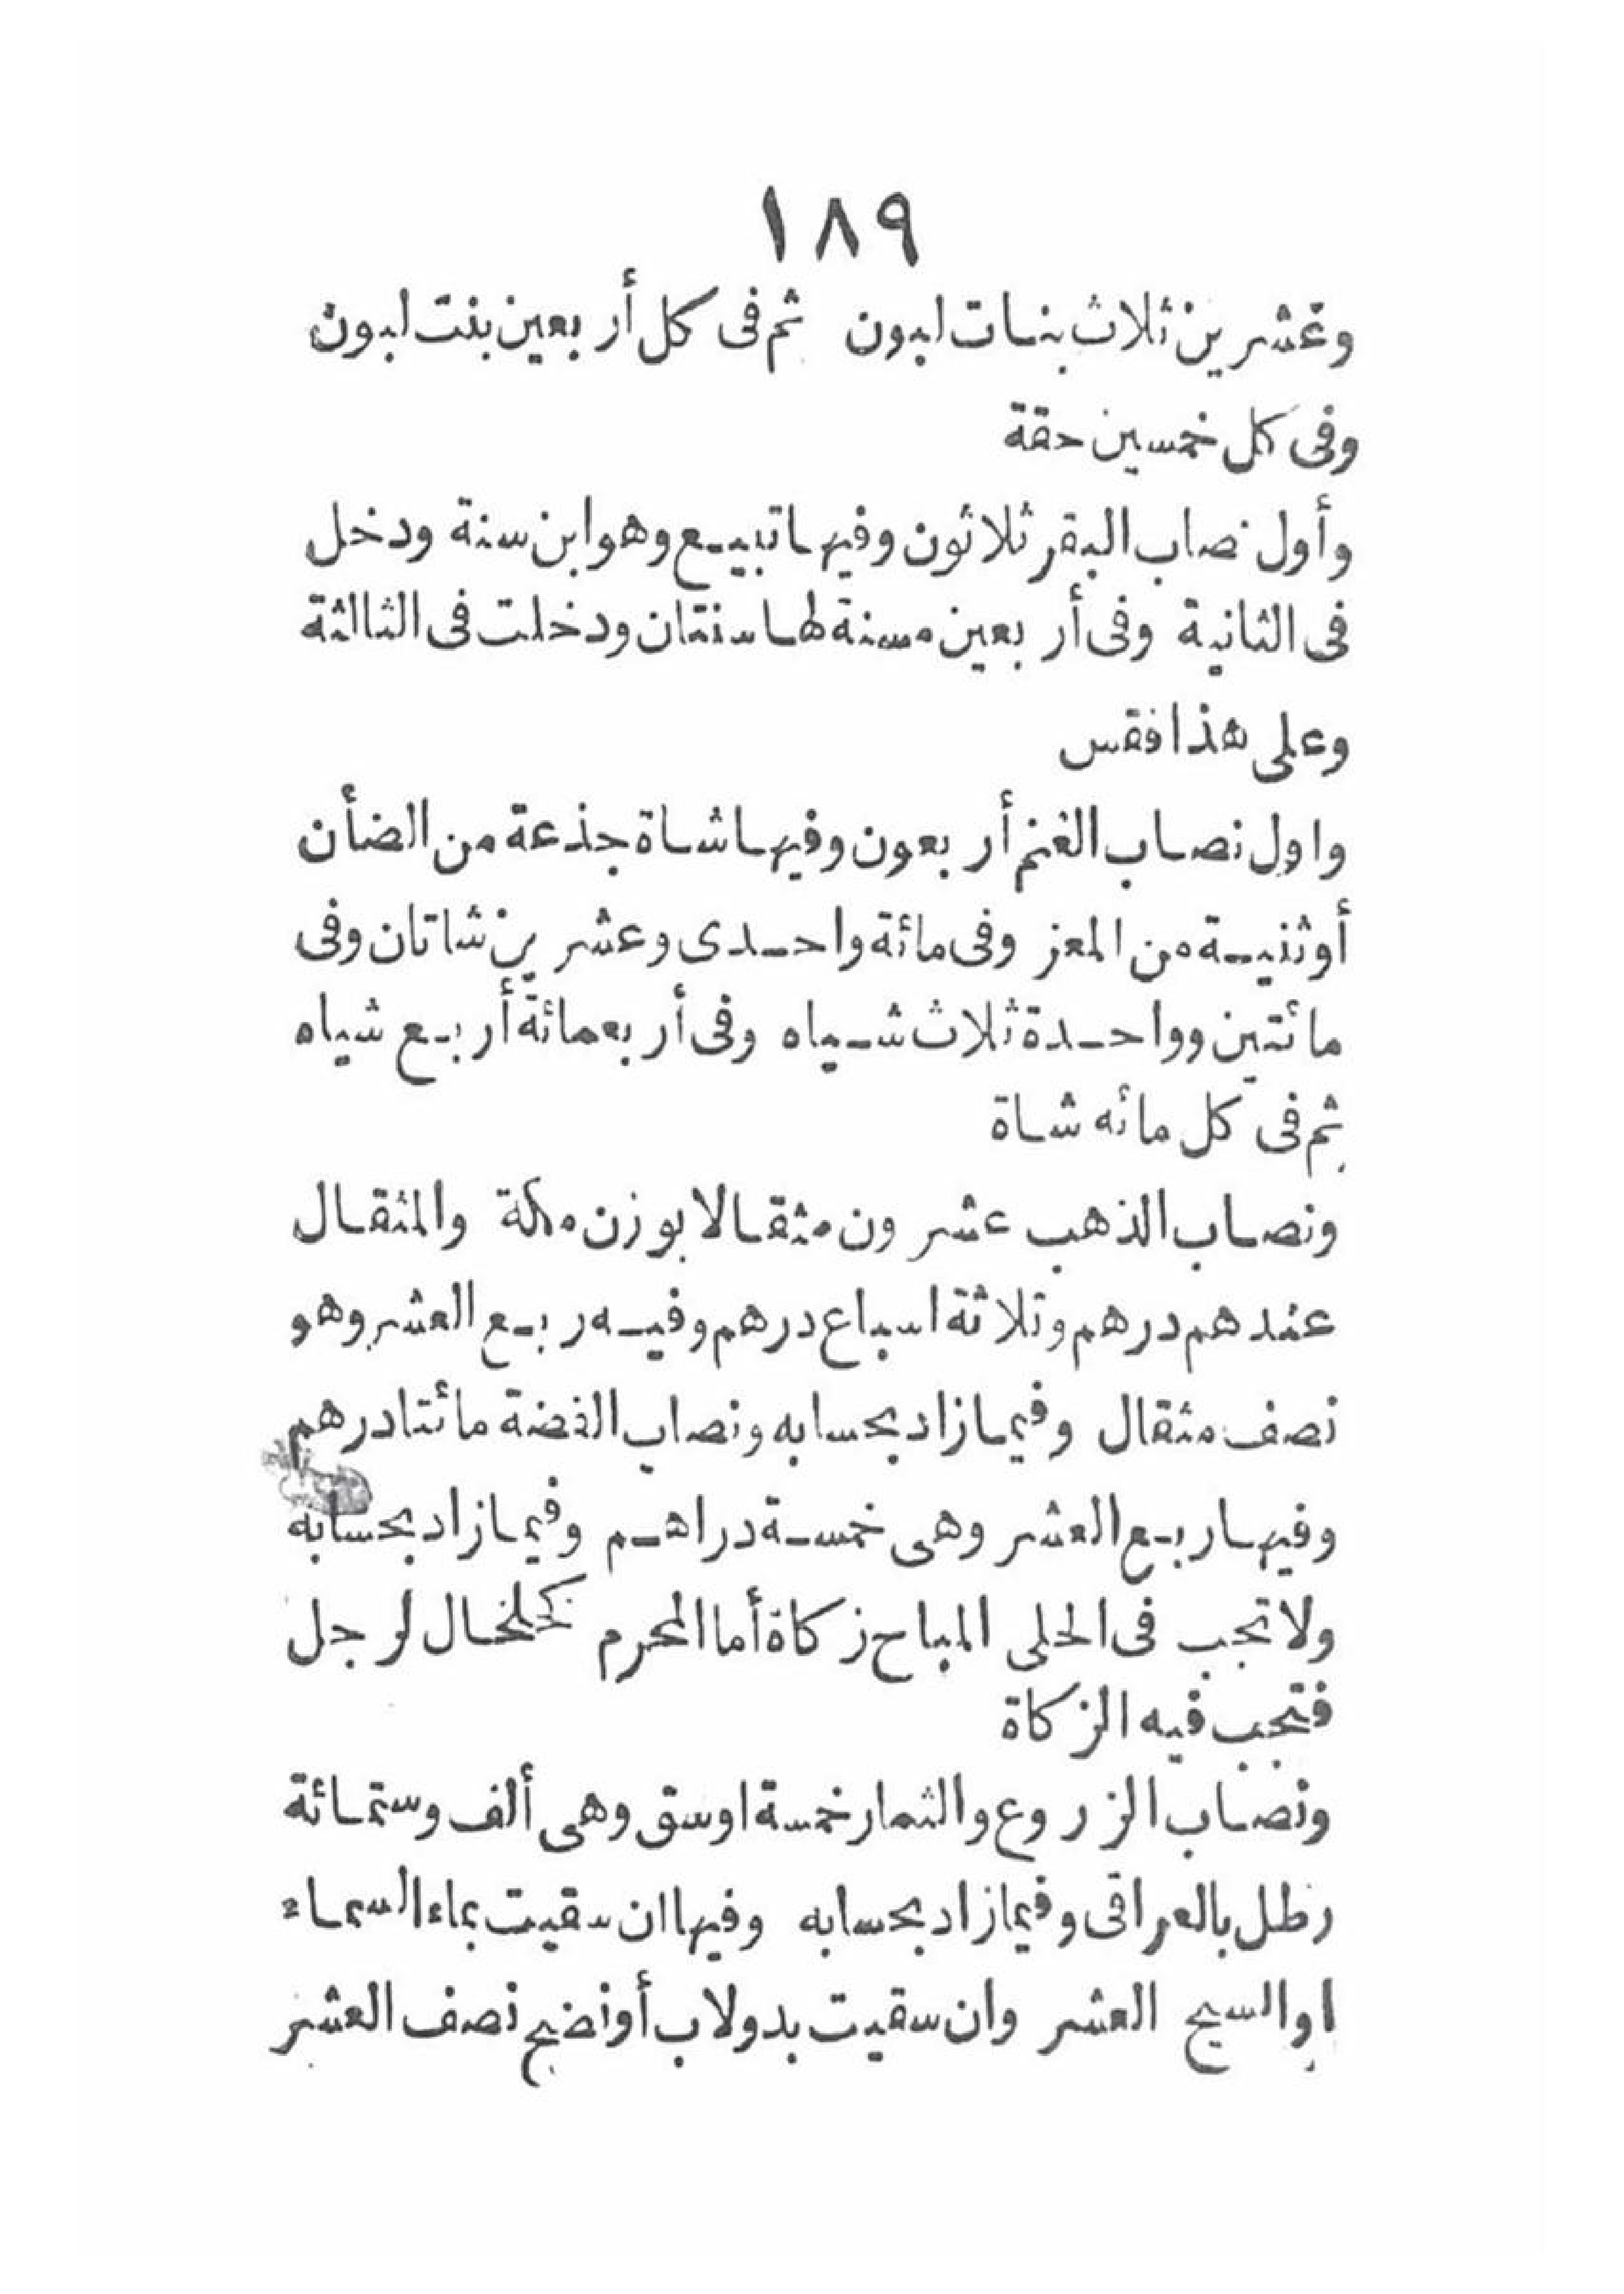 ١٨٩
وعشرين ثلاث بنات لبون ثم فى كل أربعين بنت لبون
وفى كل خمسين حقة
وأول نصاب البقر ثلاثون وفيها تبيع وهو ابن سنة ودخل
فى الثانية وفى أربعين مسنة لها سنتان ودخلت فى الثالثة
وعلى هذا فقس
واول نصاب الغنم أربعون وفيها شاة جذعة من الضأن
أو ثنية من المعز وفى مائة واحدى وعشرين شاتان وفى
مائتين وواحدة ثلاث شياه وفى أربعمائة أربع شياه
ثم فى كل مائه شاة
ونصاب الذهب عشرون مثقالا بوزن مكة والمثقال
عندهم درهم وثلاثة اسباع درهم وفيه ربع العشر وهو
نصف مثقال وفيما زاد بحسابه ونصاب الفضة مائتا درهم
وفيها ربع العشر وهى خمسة دراهم وفيما زاد بحسابه
ولا تجب فى الحلى المباح زكاة أما المحرم كخلخال لرجل
فتجب فيه الزكاة
ونصاب الزروع والثمار خمسة اوسق وهى ألف وستمائة
رطل بالعراقى وفيما زاد بحسابه وفيها ان سقيت بماء السماء
او السيح العشر وان سقيت بدولاب أو نضح نصف العشر